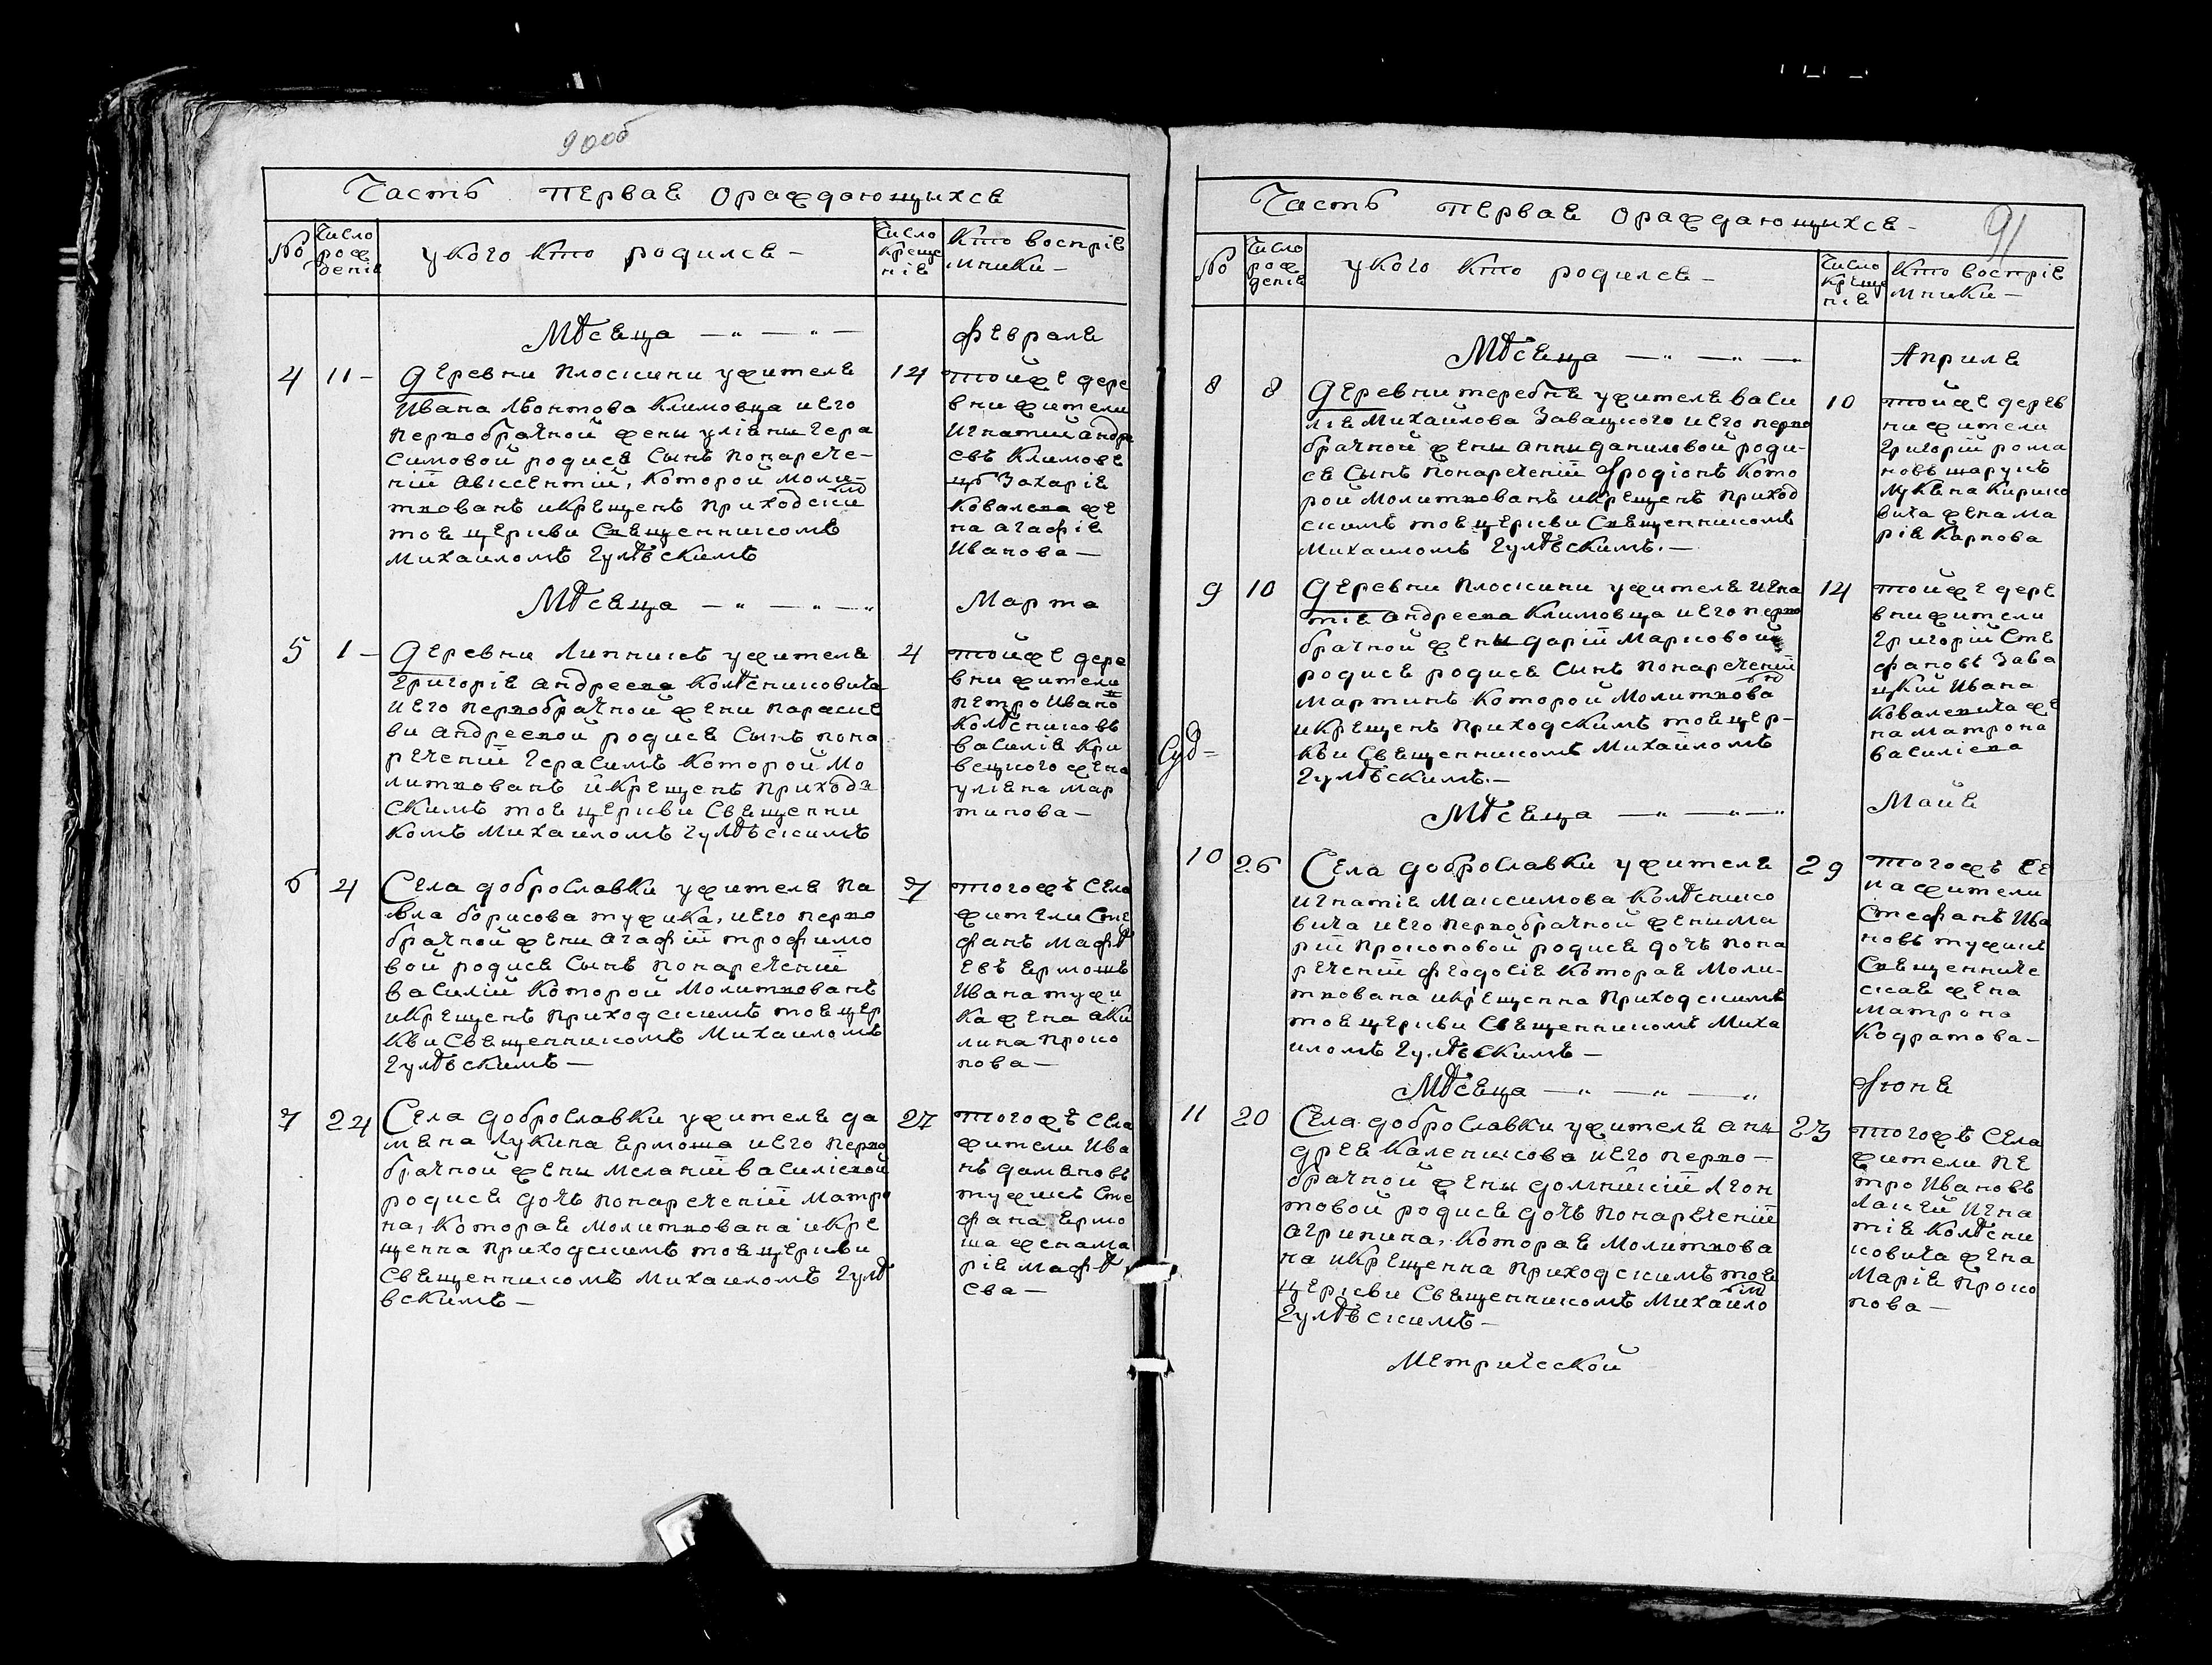 90об
Часть первая ораждающихся
№
Число рождения
у кого кто родился —
Число крещения
Кто восприемники —
Мѣсяца — " — " —
февраля
4
11 —
Деревни Плоскини ужителя
Ивана Леонтова Климовца и его
первобрачной жены Улияны Гера
симовой родися Сынъ понарече-
нiй Авксентiй, которой моли-
твованъ и крещенъ приходски
тоя церкви Священникомъ
Михаиломъ Гулѣвскимъ
14
тойже дере
вни жители
Игнатий Андре
евъ Климовѣ
цъ Захарiя
Ковалева же
на Агафiя
Иванова —
Мѣсяца — " — " — "
Марта
5
1 —
Деревни Липникъ ужителя
Григорiя Андреева Колѣсниковича
и его первобрачной жени Параске
ви Андреевой родися Сынъ пона
реченiй Герасимъ которой мо
литвованъ и крещенъ приход
скимъ тоя церкви Священни
комъ Михаиломъ Гулѣвскимъ
4
тойже дере
вни жители
Петро Ивано
Колѣсниковъ
Василiя Кри
вецкого жена
Улiяна Мар
тинова —
6
4
Села Доброславки ужителя Па
вла Борисова Тужика, и его перво
брачной жени Агафiй Трофимо
вой родися Сынъ понареченiй
Василiй которой молитвованъ
и крещенъ приходскимъ тоя цер
кви Священникомъ Михаиломъ
Гулѣвскимъ —
7
тогожъ Села
жители Сте
фанъ Мафѣ
евъ Ермошъ
Ивана Тужи
ка жена Аки
лина Проко
пова —
7
24
Села Доброславки ужителя Да
мяна Лукина Ермоша и его перво
брачной жени Меланiй Василiевой
родися дочъ понареченiй Матро
на, которая молитвована и кре
щенна приходскимъ тоя церкви
Священникомъ Михаиломъ Гулѣ
вскимъ —
27
тогожъ Села
жители Ива
нъ Дамяновъ
Тужикъ Сте
фана Ермо
ша жена Ма
рiя Мафѣ
ева —
91
Часть первая ораждающихся —
№
Число рождения
у кого кто родился —
Число крещения
Кто восприемники —
Мѣсяца — " — " —
Априля
8
8
Деревни Теребня ужителя Васи
лiя Михайлова Завацкого и его перво
брачной жени Анни Даниловой роди-
ся Сынъ понареченiй Iродiонъ кото
рой молитвованъ и крещенъ приход
скимъ тоя церкви Священникомъ
Михаиломъ Гулѣвскимъ. —
10
тойже дерев
ни жители
Григорiй Рома
новъ Шарукъ
Лукяна Кирико
вича жена Ма
рiя Карпова
9
10
Деревни Плоскини ужителя Игна
тiя Андреева Климовца и его перво
брачной жены Дарiй Марковой
родися родися Сынъ понареченiй
Мартинъ которой молитвова
и крещенъ приходскимъ тоя цер-
кви Священникомъ Михаиломъ
Гулѣвскимъ. —
14
тойже дере
вни жители
Григорiй Сте
фановъ Зава
цкiй Ивана
Ковалевича же
на Матрона
Василiева
Мѣсяца — " — " — "
Маiя
10
26
Села Доброславки ужителя
Игнатiя Максимова Колѣснико
вича и его первобрачной жени Ма
рiй Прокоповой родися дочъ пона
реченiй Феодосiя которая моли-
твована и крещенна приходскимъ
тоя церкви Священникомъ Миха
иломъ Гулѣвскимъ —
29
тогожъ Се
ла жители
Стефанъ Ива
новъ Тужикъ
Священниче
ская жена
Матрона
Кодратова —
Мѣсяца — " — " — "
Iюня
11
20
Села Доброславки ужителя Ан
дрея Каленикова и его перво —
брачной жены Домникiй Леон
товой родися дочъ понареченiй
Агрипина, которая молитвова
на и крещенна приходскимъ тоя
церкви Священникомъ Михаило
Гулѣвскимъ —
23
тогожъ Села
жители Пе
тро Ивановъ
Игна
тiя Колѣсни
ковича жена
Марiя Проко
пова —
Метрической